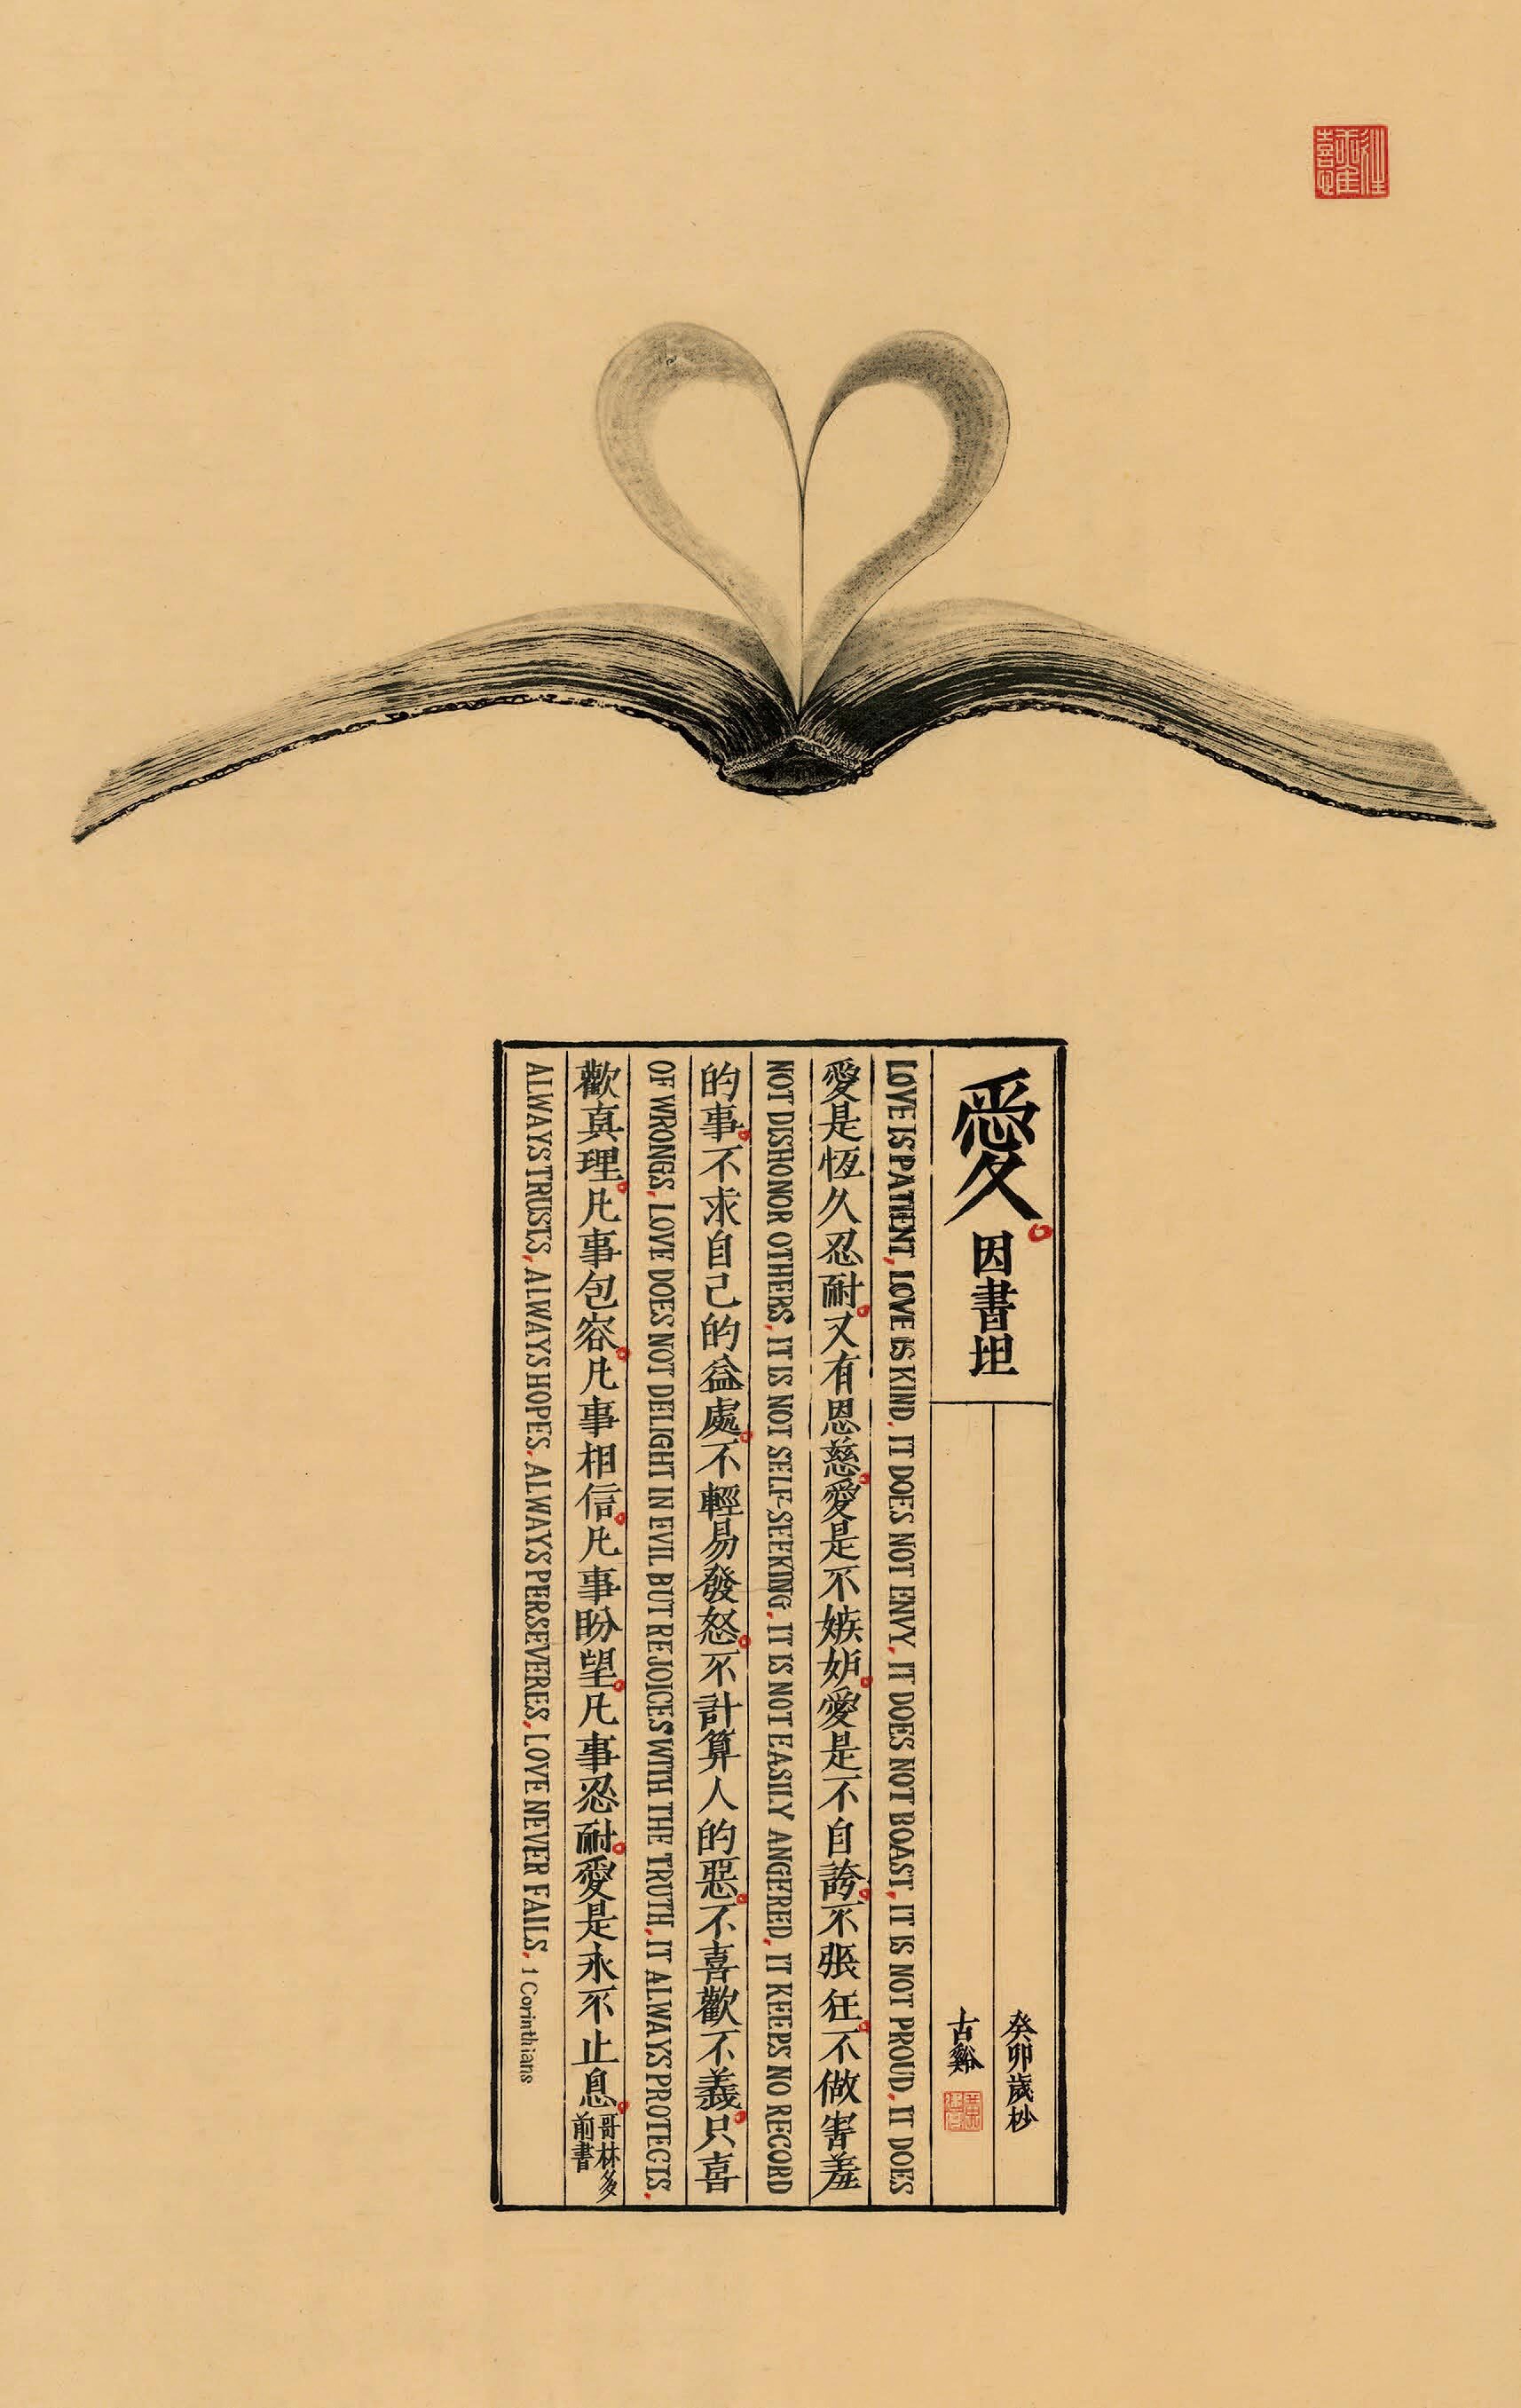 愛。因書坦
癸卯歲杪
古谿
LOVE IS PATIENT, LOVE IS KIND. IT DOES NOT ENVY, IT DOES NOT BOAST, IT IS NOT PROUD. IT DOES
愛是恆久忍耐。又有恩慈。愛是不嫉妒。愛是不自誇。不張狂。不做害羞
NOT DISHONOR OTHERS, IT IS NOT SELF-SEEKING, IT IS NOT EASILY ANGERED, IT KEEPS NO RECORD
的事。不求自己的益處。不輕易發怒。不計算人的惡。不喜歡不義。只喜
OF WRONGS, LOVE DOES NOT DELIGHT IN EVIL BUT REJOICES WITH THE TRUTH, IT ALWAYS PROTECTS,
歡真理。凡事包容。凡事相信。凡事盼望。凡事忍耐。愛是永不止息。哥林多前書
ALWAYS TRUSTS, ALWAYS HOPES, ALWAYS PERSEVERES, LOVE NEVER FAILS, 1 Corinthians